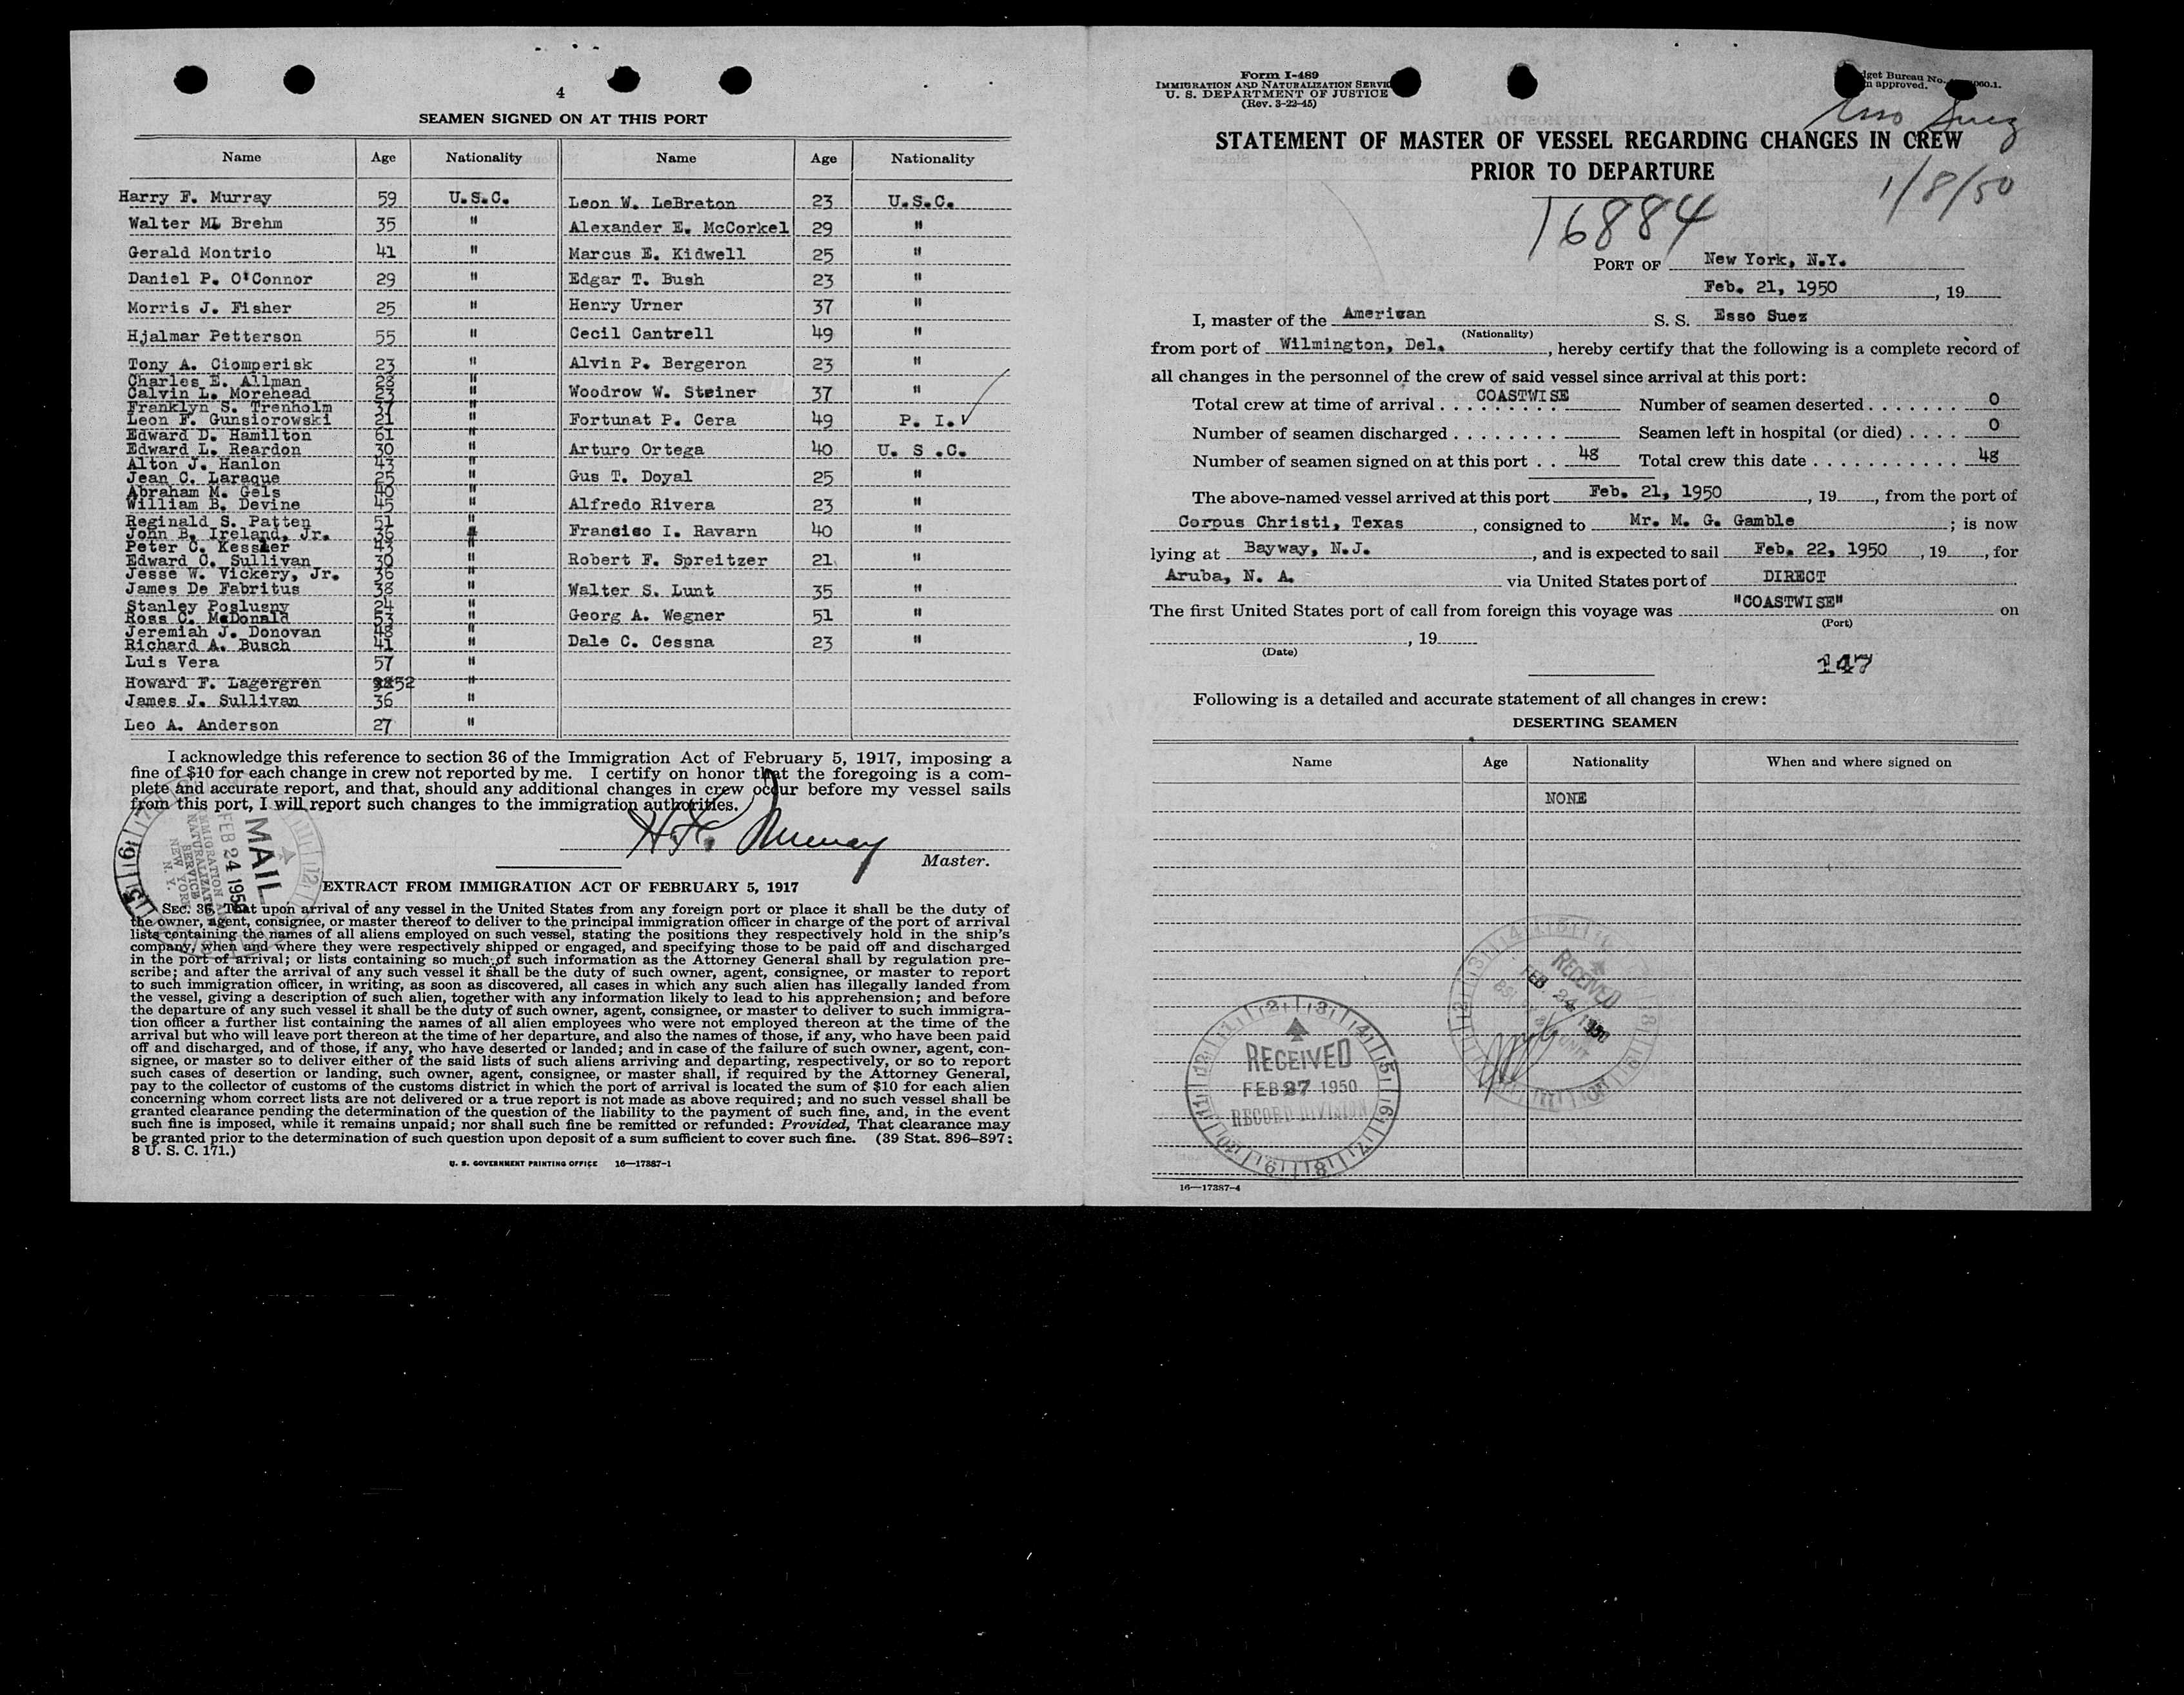 4
SEAMEN SIGNED ON AT THIS PORT
Name Age Nationality Name Age Nationality
Harry F. Murray 59 U.S.C. Leon W. LeBreton 23 U.S.C.
Walter M. Brehm 35 " Alexander E. McCorkel 29 "
Gerald Montrio 41 " Marcus E. Kidwell 25 "
Daniel P. O'Connor 29 " Edgar T. Bush 23 "
Morris J. Fisher 25 " Henry Urner 37 "
Hjalmar Petterson 55 " Cecil Cantrell 49 "
Tony A. Ciomperisk 23 " Alvin P. Bergeron 23 "
Charles E. Allman 28 "
Calvin L. Morehead 23 " Woodrow W. Steiner 37 "
Franklyn S. Trenholm 37 "
Leon F. Gunsiorowski 21 " Fortunat P. Cera 49 P. I.
Edward D. Hamilton 61 "
Edward L. Reardon 30 " Arturo Ortega 40 U. S .C.
Alton J. Hanlon 43 "
Jean C. Laraque 25 " Gus T. Doyal 25 "
Abraham M. Gels 40 "
William B. Devine 45 " Alfredo Rivera 23 "
Reginald S. Patten 51 "
John B. Ireland, Jr. 36 " Francico I. Ravarn 40 "
Peter C. Kessler 43 "
Edward C. Sullivan 30 " Robert F. Spreitzer 21 "
Jesse W. Vickery, Jr. 36 "
James De Fabritus 38 " Walter S. Lunt 35 "
Stanley Poslusny 24 "
Ross C. McDonald 53 " Georg A. Wegner 51 "
Jeremiah J. Donovan 48 "
Richard A. Busch 41 " Dale C. Cessna 23 "
Luis Vera 57 "
Howard F. Lagergren 52 "
James J. Sullivan 36 "
Leo A. Anderson 27 "
I acknowledge this reference to section 36 of the Immigration Act of February 5, 1917, imposing a
fine of $10 for each change in crew not reported by me. I certify on honor that the foregoing is a com-
plete and accurate report, and that, should any additional changes in crew occur before my vessel sails
from this port, I will report such changes to the immigration authorities.
H. F. Murray
Master.
MAIL
FEB 24 1950
IMMIGRATION AND
NATURALIZATION
SERVICE
NEW YORK
N. Y.
EXTRACT FROM IMMIGRATION ACT OF FEBRUARY 5, 1917
SEC. 36. That upon arrival of any vessel in the United States from any foreign port or place it shall be the duty of
the owner, agent, consignee, or master thereof to deliver to the principal immigration officer in charge of the port of arrival
lists containing the names of all aliens employed on such vessel, stating the positions they respectively hold in the ship's
company, when and where they were respectively shipped or engaged, and specifying those to be paid off and discharged
in the port of arrival; or lists containing so much of such information as the Attorney General shall by regulation pre-
scribe; and after the arrival of any such vessel it shall be the duty of such owner, agent, consignee, or master to report
to such immigration officer, in writing, as soon as discovered, all cases in which any such alien has illegally landed from
the vessel, giving a description of such alien, together with any information likely to lead to his apprehension; and before
the departure of any such vessel it shall be the duty of such owner, agent, consignee, or master to deliver to such immigra-
tion officer a further list containing the names of all alien employees who were not employed thereon at the time of the
arrival but who will leave port thereon at the time of her departure, and also the names of those, if any, who have been paid
off and discharged, and of those, if any, who have deserted or landed; and in case of the failure of such owner, agent, con-
signee, or master so to deliver either of the said lists of such aliens arriving and departing, respectively, or so to report
such cases of desertion or landing, such owner, agent, consignee, or master shall, if required by the Attorney General,
pay to the collector of customs of the customs district in which the port of arrival is located the sum of $10 for each alien
concerning whom correct lists are not delivered or a true report is not made as above required; and no such vessel shall be
granted clearance pending the determination of the question of the liability to the payment of such fine, and, in the event
such fine is imposed, while it remains unpaid; nor shall such fine be remitted or refunded: Provided, That clearance may
be granted prior to the determination of such question upon deposit of a sum sufficient to cover such fine. (39 Stat. 896-897;
8 U. S. C. 171.)
U. S. GOVERNMENT PRINTING OFFICE 16—17387-1
Form I-489
IMMIGRATION AND NATURALIZATION SERVICE
U. S. DEPARTMENT OF JUSTICE
(Rev. 3-22-45)
Bureau No.
approved.
Esso Suez
STATEMENT OF MASTER OF VESSEL REGARDING CHANGES IN CREW
PRIOR TO DEPARTURE
1/8/50
16884
PORT OF New York, N.Y.
Feb. 21, 1950, 19
I, master of the American S. S. Esso Suez
(Nationality)
from port of Wilmington, Del., hereby certify that the following is a complete record of
all changes in the personnel of the crew of said vessel since arrival at this port:
Total crew at time of arrival COASTWISE Number of seamen deserted 0
Number of seamen discharged Seamen left in hospital (or died) 0
Number of seamen signed on at this port 48 Total crew this date 48
The above-named vessel arrived at this port Feb. 21, 1950, 19, from the port of
Corpus Christi, Texas, consigned to Mr. M. G. Gamble; is now
lying at Bayway, N.J., and is expected to sail Feb. 22, 1950, 19, for
Aruba, N. A. via United States port of DIRECT
The first United States port of call from foreign this voyage was "COASTWISE" on
(Port)
, 19
(Date)
147
Following is a detailed and accurate statement of all changes in crew:
DESERTING SEAMEN
Name Age Nationality When and where signed on
NONE
RECEIVED
FEB 24 1950
RECEIVED
FEB 27 1950
RECORD DIVISION
16—17387-4